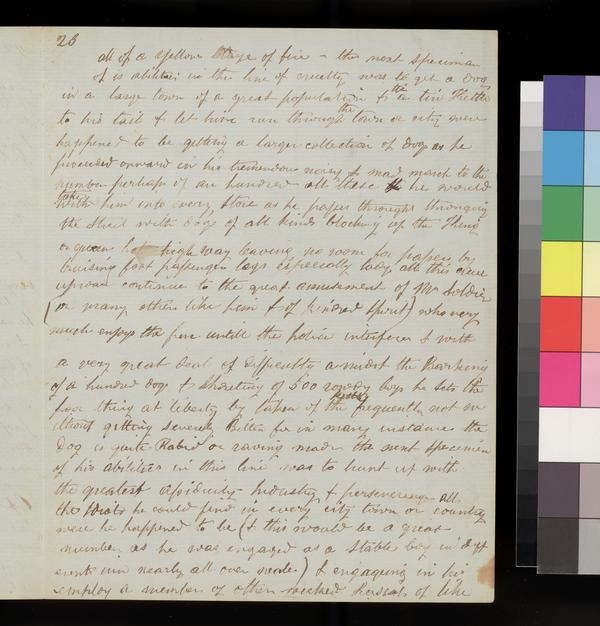 26
all of a yellow of fire - the next specimen
of is abilities in this line of cruelty was to get a Dog
in a large town of a great population & tie a tin Kettle
to his tail & let him run through the town or city were
happened to be getting a larger collection of dogs as he
proceeded onward in his tremendous noisy & mad march to the
number perhaps of an hundred all these he would
take with him into every store as he passes through thronging
the Street with dogs of all kinds blocking up the
or high way leaving no room for passers by
bruising foot passenger legs especially lady all this
uproar continue to the great amusement of Mr Soldier
(or many others like him & of kindred spirit) who very
much enjoys the fun untill the police interferes & with
a very great deal of difficulty amidst the Barking
of a hundred dogs & shouting of 500 rowdy boys he sets the
poor thing at liberty by taken of the kettle frequently not wi
thout getting severely Bitten for in many instances the
Dog is quite Rabid or raving mad the next specimen
of his abilities in this line was to hunt up with
the greatest assiduity - Industry & perseverence all
the Idiots he could find in every city town or country
were he happened to be (& this would be a great
number as he was engaged as a Stable boy in dift
nearly all over ) & engageing in his
employ a number of other wretched Rascals of like